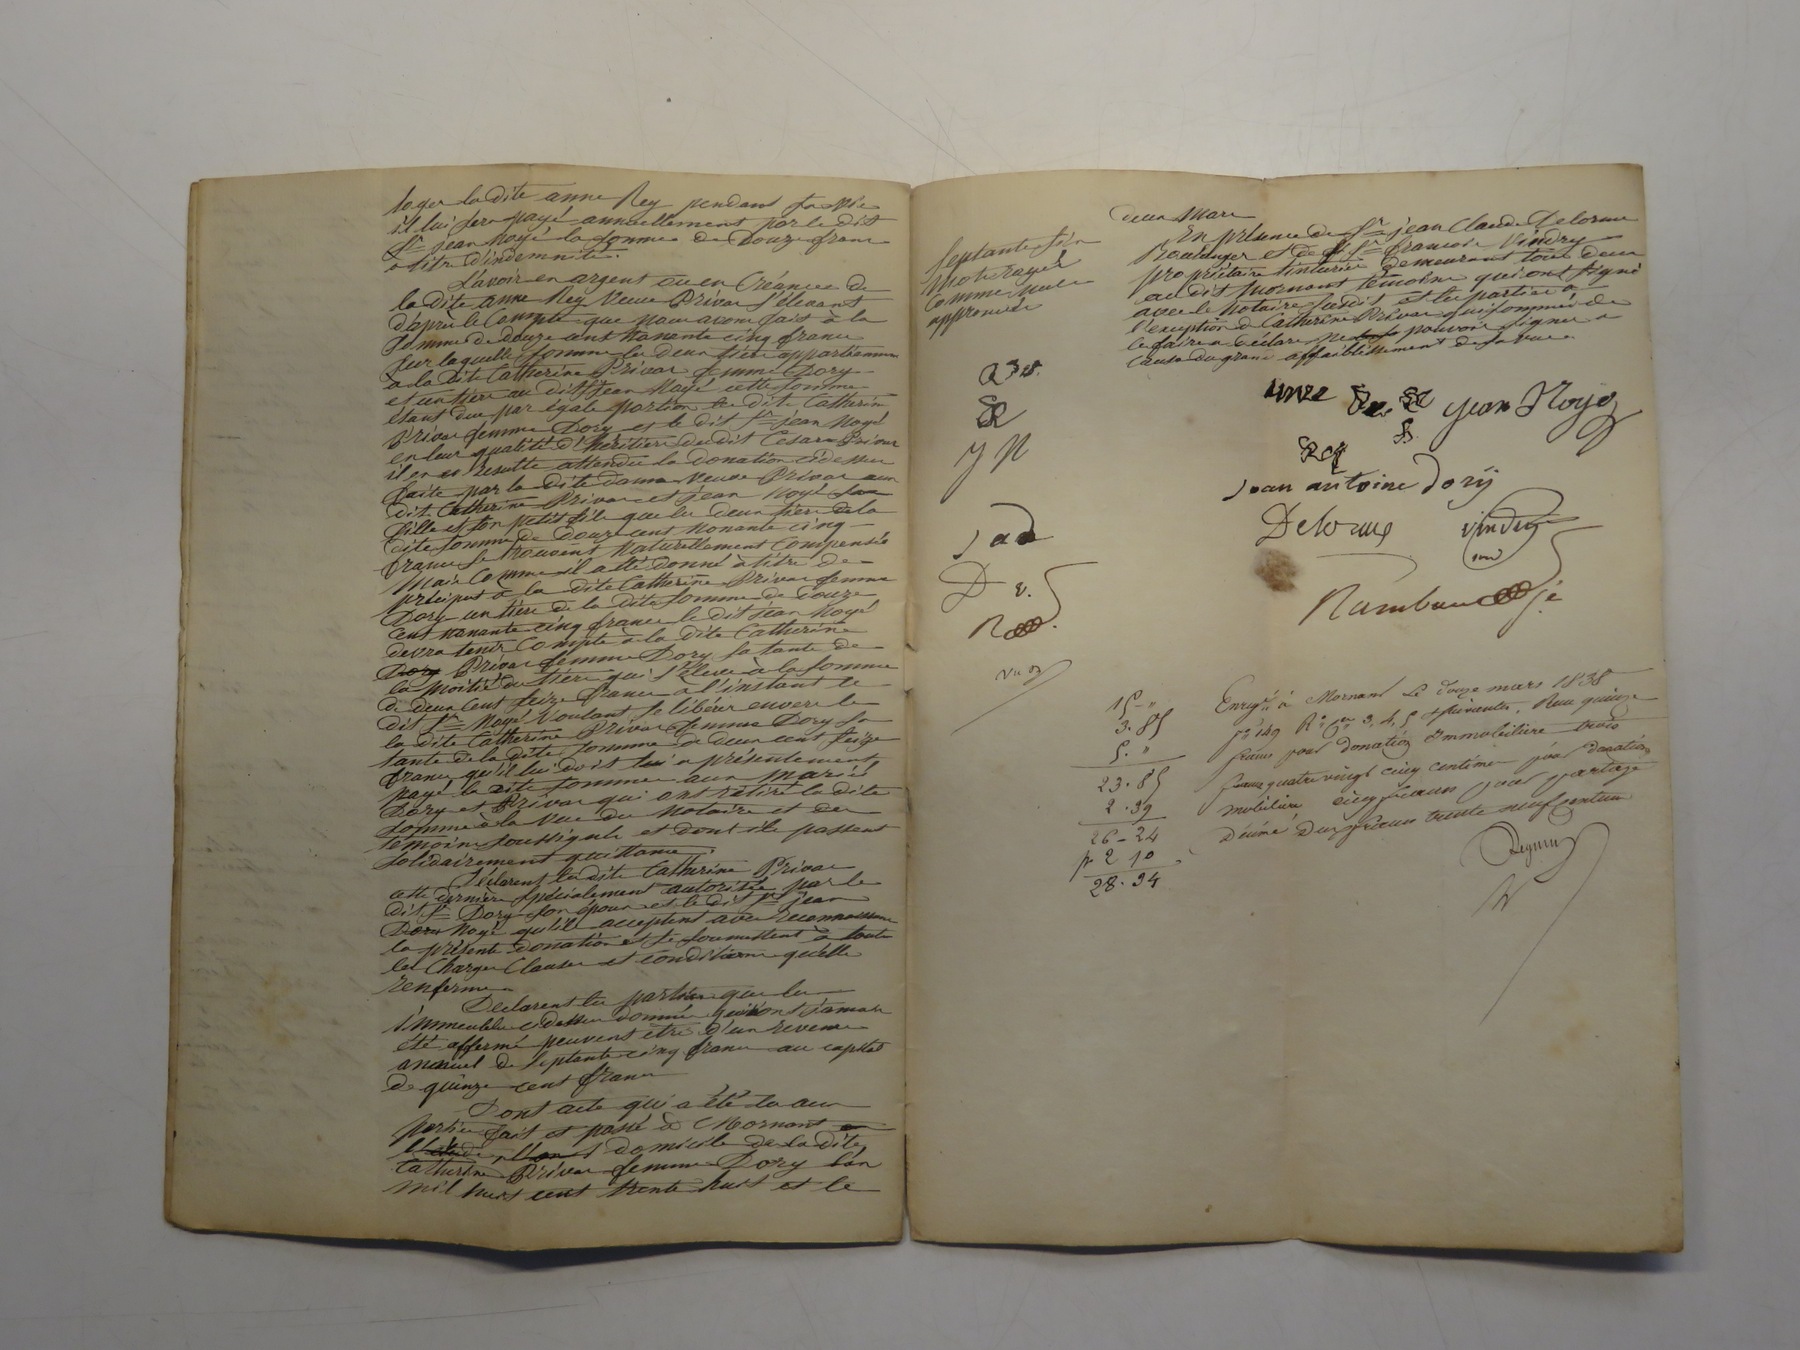 loger la dite anne Rey pendant sa vie
il lui sera payé annuellement par le dit
Sr jean Noyé la somme de Douze franc
a titre d'indemnité.
L'avoir en argent ou en Créances de
la dite anne Rey Veuve Privas s'élevant
d'après le Compte que nous avons fait à la
somme de douze cent Nonante cinq francs
sur laquelle somme les deux tiers appartiennent
à la dite Catherine Privas femme Dory
et un tiers au dit Jean Noyé cette somme
étant due par égale portion la dite Catherine
Privas femme Dory et le dit Sr jean Noyé
en leur qualité d'héritiers du dit Cesar Privas
il en résulte attendu la donation cidessus
faite par la dite dame Veuve Privas aux
dit Catherine Privas et jean Noyé sa
fille et son petit fils que les deux tiers de la
dite somme de Douze cent nonante cinq
francs se trouvent Naturellement Compensés
Mais Comme il a été donné à titre de
préciput à la dite Catherine Privas femme
Dory un tiers de la dite somme de Douze
cent nonante cinq francs le dit jean Noyé
devra tenir Compte à la dite Catherine
Dory Privas femme Dory sa tante de
la moitié du tiers qui s'élève à la somme
de deux cent seize francs a l'instant le
dit Sr Noyé Voulant se libérer envers la
la dite Catherine Privas femme Dory sa
tante de la dite somme de deux cent seize
francs qu'il lui doit lui a présentement
payé la dite somme aux mariés
Dory et Privas qui ont retiré la dite
somme à la Vue du Notaire et des
temoins soussignés et dont ils passent
solidairement quittance.
Déclarent la dite Catherine Privas
cette dernière spécialement autorisée par le
dit Sr Dory son époux et le dit Sr jean
Dory Noyé qu'ils acceptent avec reconnaissance
la présente donation et se soumettent à toutes
les Charges Clauses et conditions qu'elle
renferme
Déclarent les parties que les
immeubles cidessus donnés qui n'ont jamais
été affermé peuvent être d'un revenu
annuel de septante cinq francs au capital
de quinze cent francs
Dont acte qui a été lu aux
parties fait et passé à Mornant
domicile de la dite
Catherine Privas femme Dory l'an
mil huit cent trente huit et le
deux Mars
En présence de Sr jean Claude Delorme
Boulanger et de Sr francois Vindry
propriétaire teinturier demeurant tous deux
au dit Mornant témoins qui ont signé
avec le Notaire susdit et les parties à
l'exception de Catherine Privas qui sommée de
le faire a déclaré ne pouvoir signer a
cause du grand affaiblissement de sa vue
Septante six
Mots rayés
Comme nuls
approuvés
SR
J N
J a D
D v.
anne
jean Noyé
Rey
Joan antoine dory
Delorme Vindry
Enregé à Mornant le Douze mars 1838
fo 149 Ro Ces 3, 4, 5 et suivantes. Reçu quinze
francs pour donation Immobilière trois
francs quatre vingt cinq centimes pour donation
mobilière cinq francs pour partage
Décime Deux francs trente neuf centimes
15 - "
3.85
5. "
23.85
2.39
26-24
p 2 10
28.34